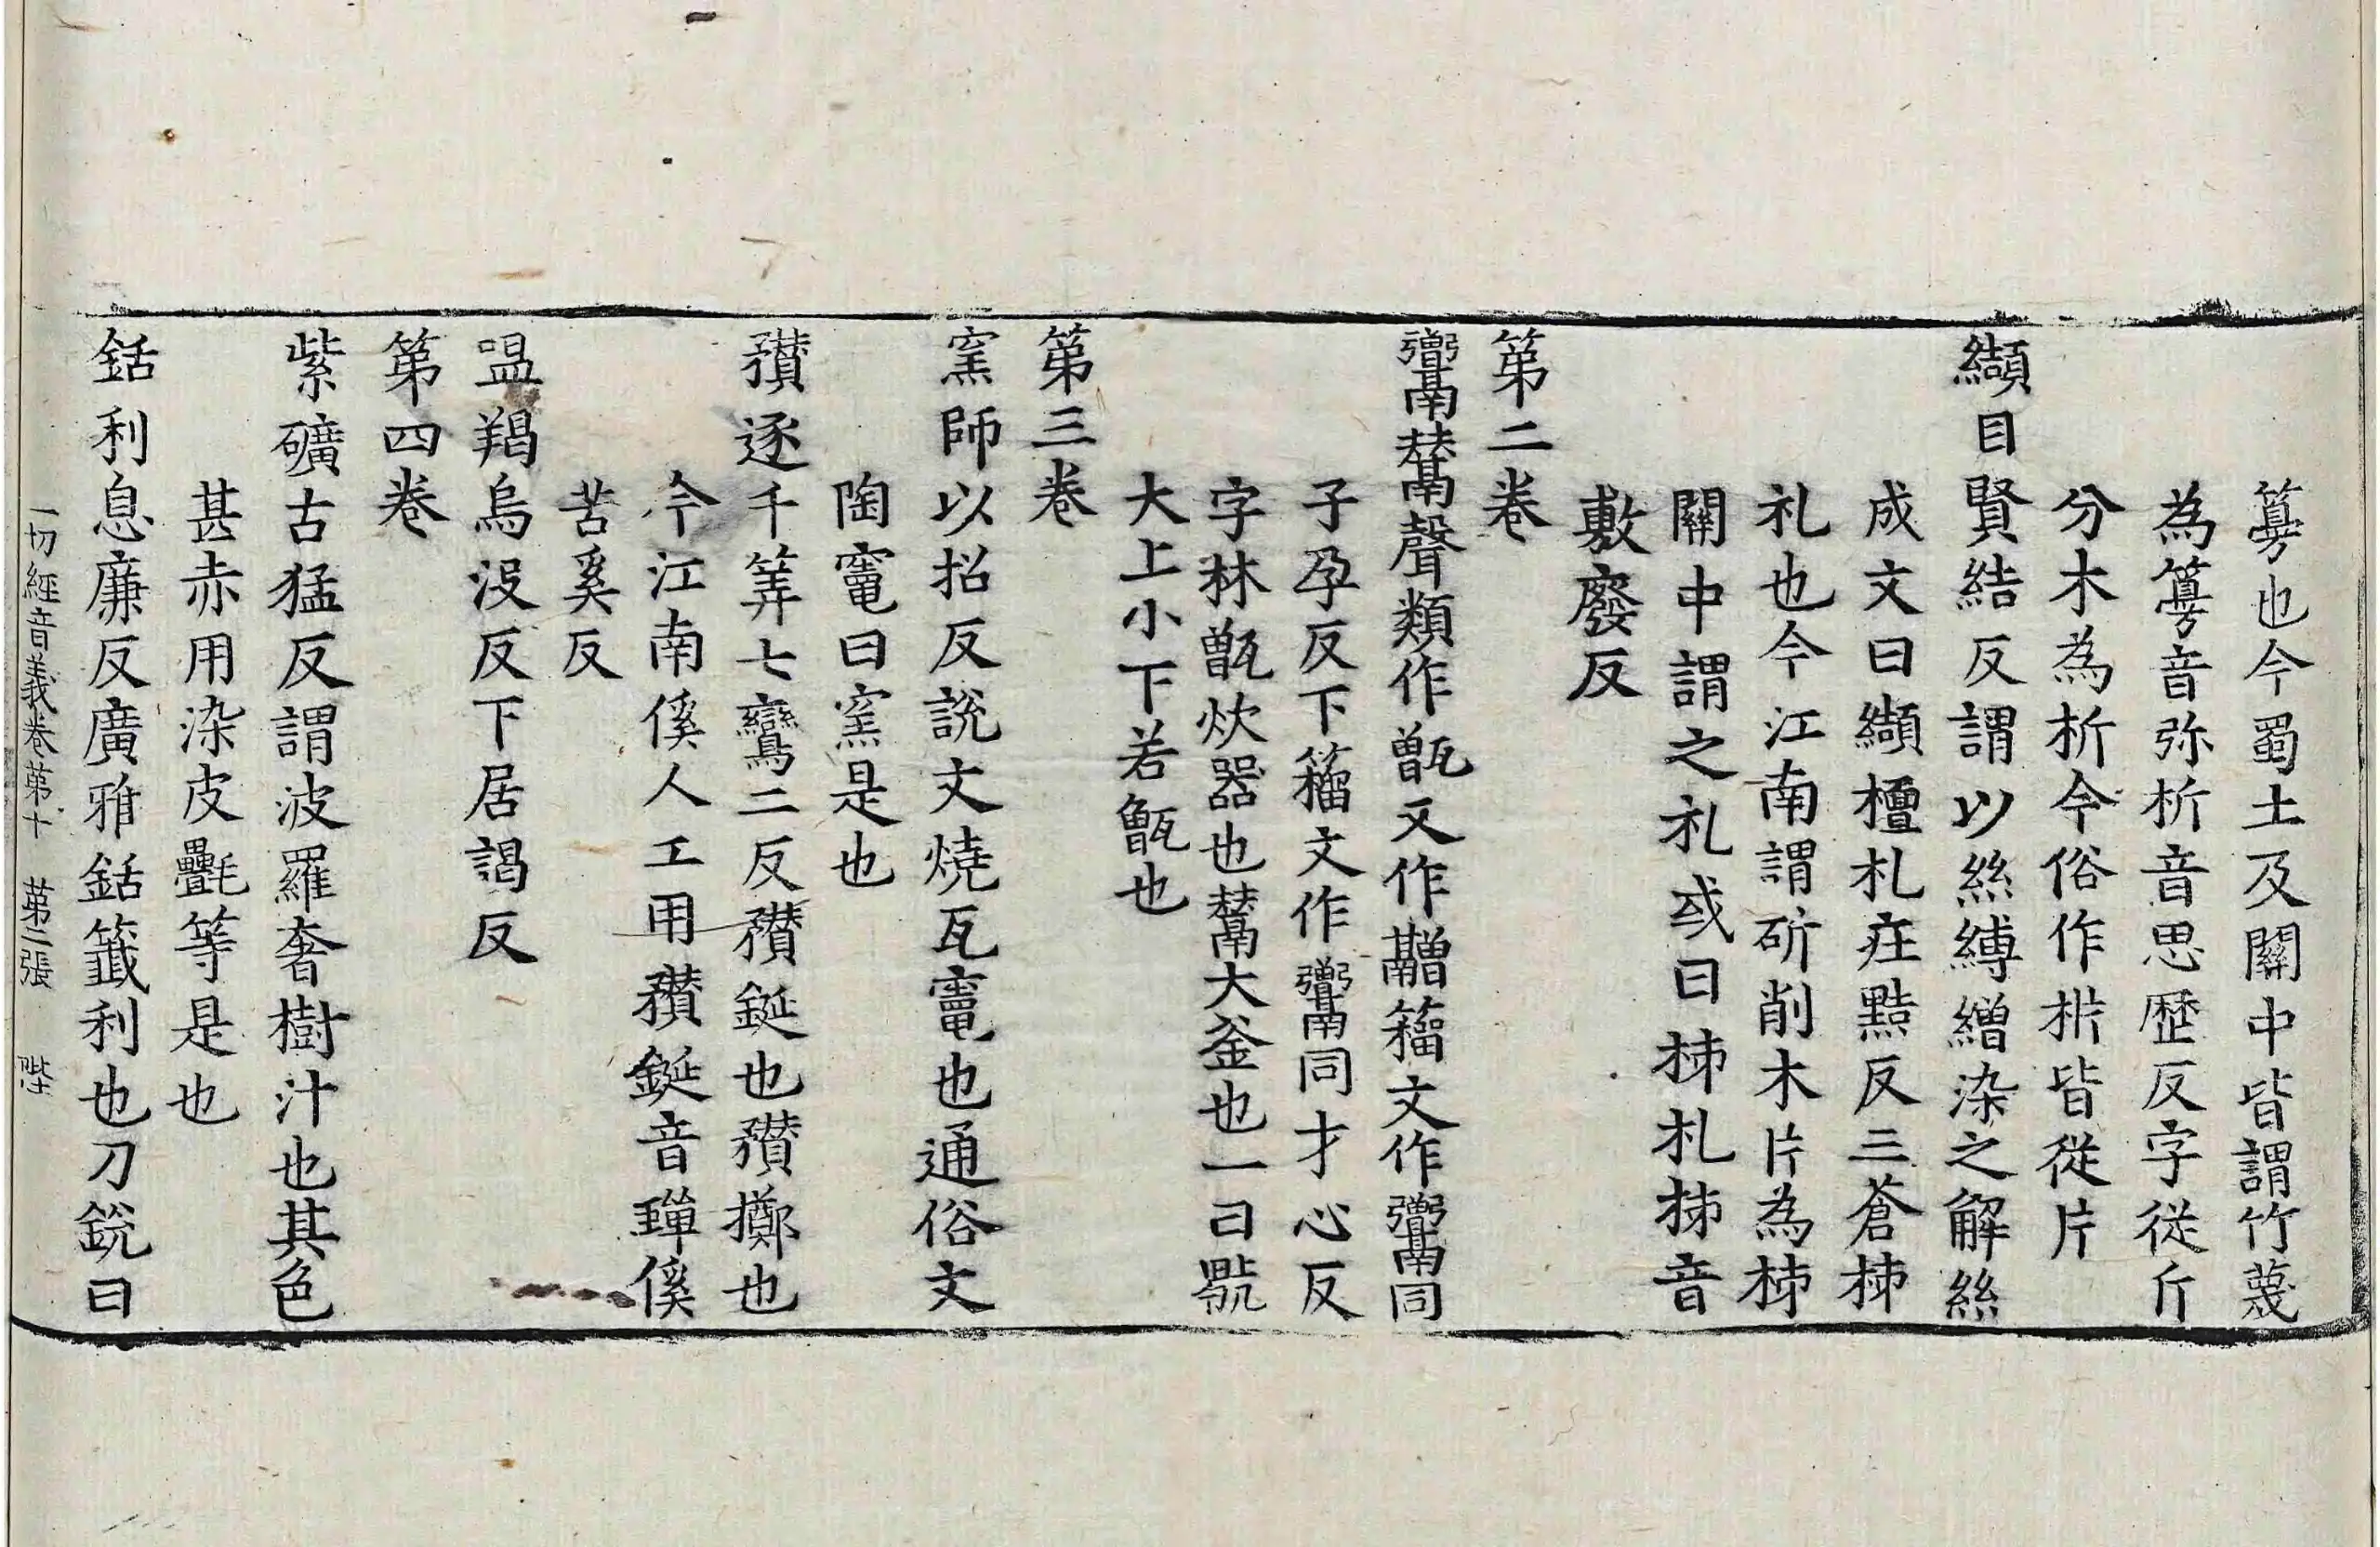 篣也今蜀土及關中皆謂竹蔑
為篣音弥析音思歷反字從斤
分木為析今俗作枿皆從片
纈目賢結反謂以絲縛繒染之解絲
成文曰纈檀札㽵黠反三蒼柿
札也今江南謂斫削木片為柿
關中謂之札或曰柿札柿音
敷廢反
第二卷
鬵聲類作甑又作䰝籀文作同
子孕反下籀文作同才心反
字林甑炊器也鬵大釜也一曰鬵
大上小下若甑也
第三卷
窯師以招反說文燒瓦竈也通俗文
陶竈曰窯是也
穳逐千筭七鸞二反穳鋋也穳擲也
今江南傒人工用穳鋋音蟬傒
苦奚反
嗢羯烏没反下居謁反
第四卷
紫礦古猛反謂波羅奢樹汁也其色
甚赤用染皮㲲等是也
銛利息廉反廣雅銛籤利也刀銳曰
一切經音義卷第十　第二張　陛